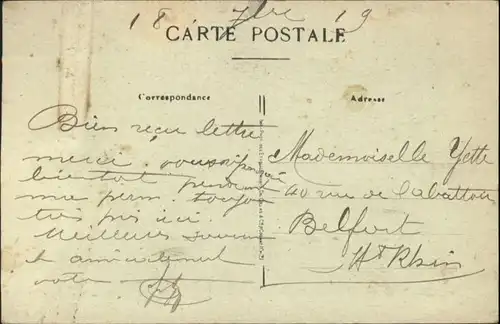 18 7bre 19
CARTE POSTALE
Correspondance
Adresse
Bien reçu lettre
merci, vous
bientot pendant
ma perm. toujours
très pris ici.
Meilleurs souvenirs
et amicalement
votre
Mademoiselle Yette
40 rue de labattoir
Belfort
Ht Rhin